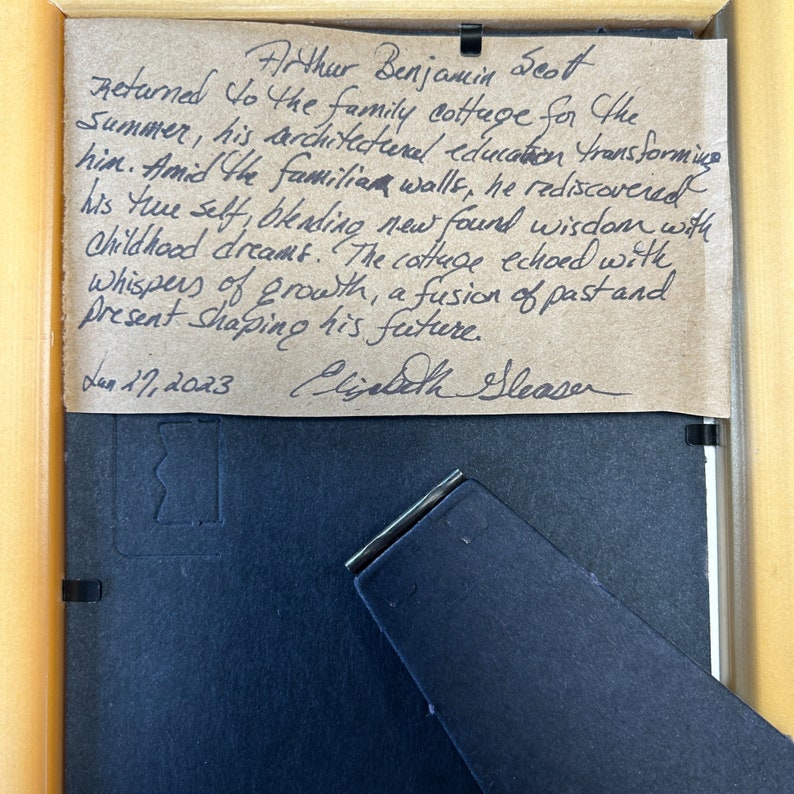 Arthur Benjamin Scott
returned to the family cottage for the
summer, his architectural education transforming
him. Amid the familiar walls, he rediscovered
his true self, blending newfound wisdom with
childhood dreams. The cottage echoed with
whispers of growth, a fusion of past and
present shaping his future.
Jun 27, 2023 Elizabeth Gleason